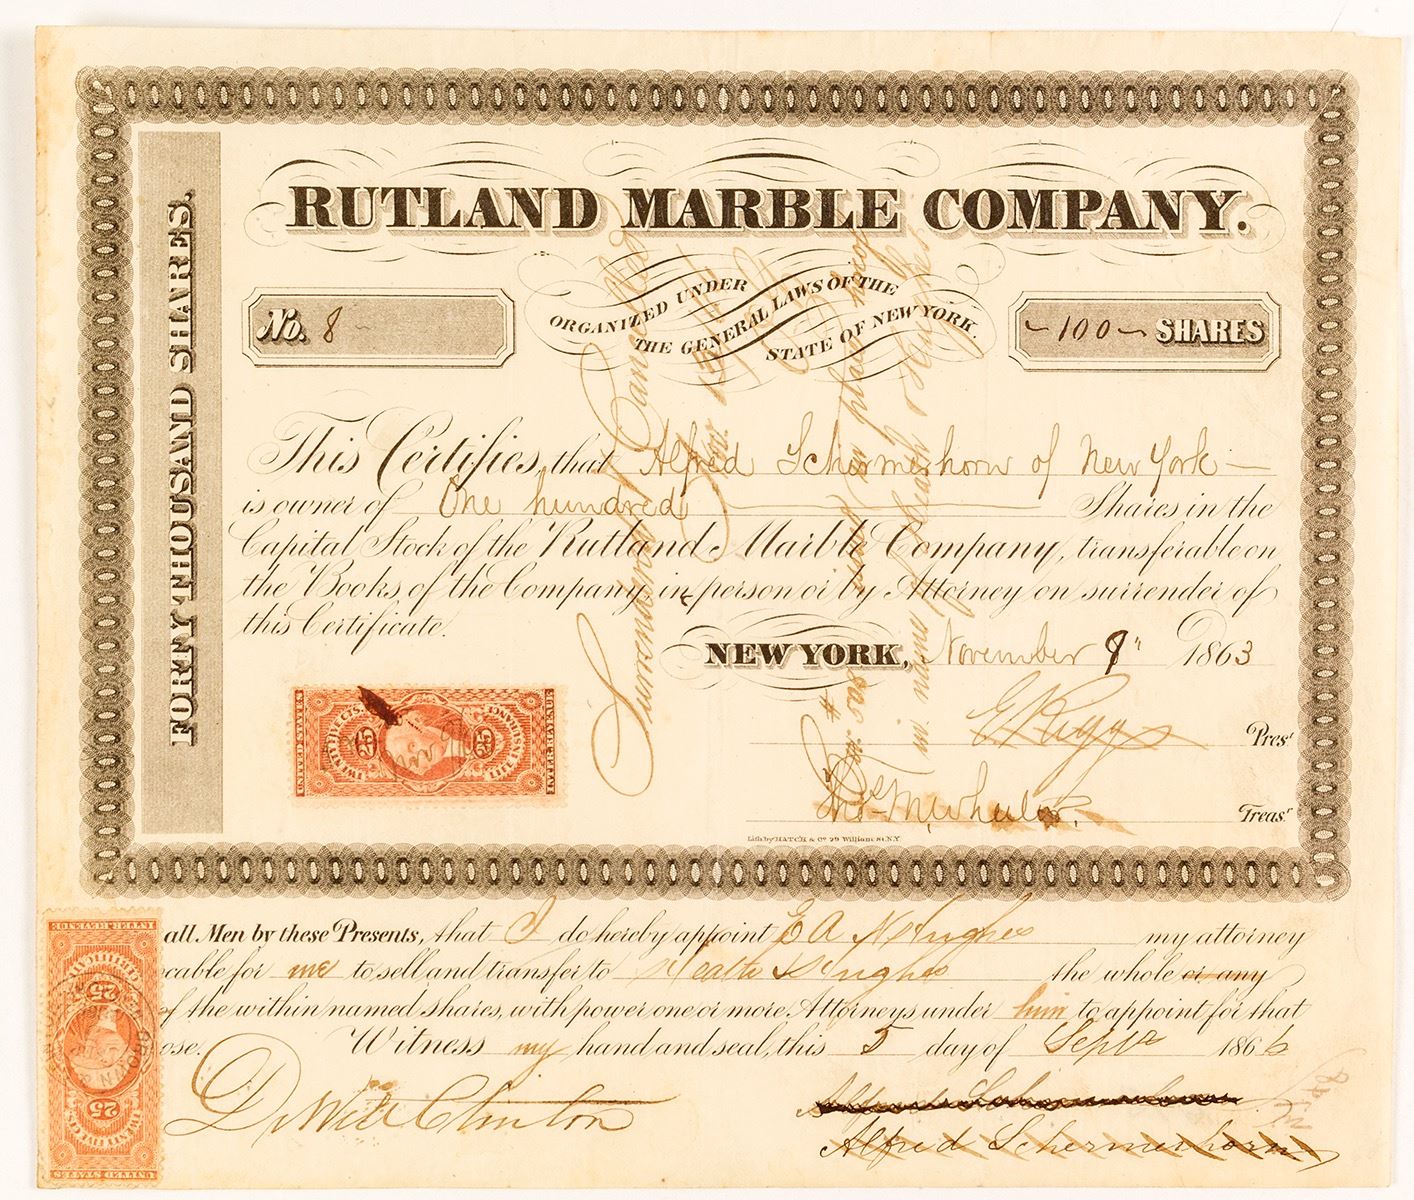 RUTLAND MARBLE COMPANY.
ORGANIZED UNDER
THE GENERAL LAWS OF THE
STATE OF NEW YORK.
No. 8
100 SHARES
FORTY THOUSAND SHARES.
This Certifies, that Alfred Schermerhorn of New York
is owner of One hundred Shares in the
Capital Stock of the Rutland Marble Company, transferable on
the Books of the Company, in person or by Attorney on surrender of
this Certificate.
NEW YORK, November 9" 1863
E Riggs Prest
Wheeler Treasr
Lith by HATCH & Co 29 William St. N.Y.
Surrendered & Cancelled
in name of Heath & Hughes
UNITED STATES
INTER. REVENUE
TWENTY FIVE CTS.
INSURANCE
25
25
all Men by these Presents, that I do hereby appoint E A Hughes my attorney
ocable for me to sell and transfer to Heath & Hughes the whole or any
of the within named shares, with power one or more Attorneys under him to appoint for that
ose. Witness my hand and seal, this 5 day of Sepr 1866
De Witt Clinton
Alfred Schermerhorn
Alfred Schermerhorn
INTER. REVENUE
25
25
TWENTY FIVE CTS.
UNITED STATES